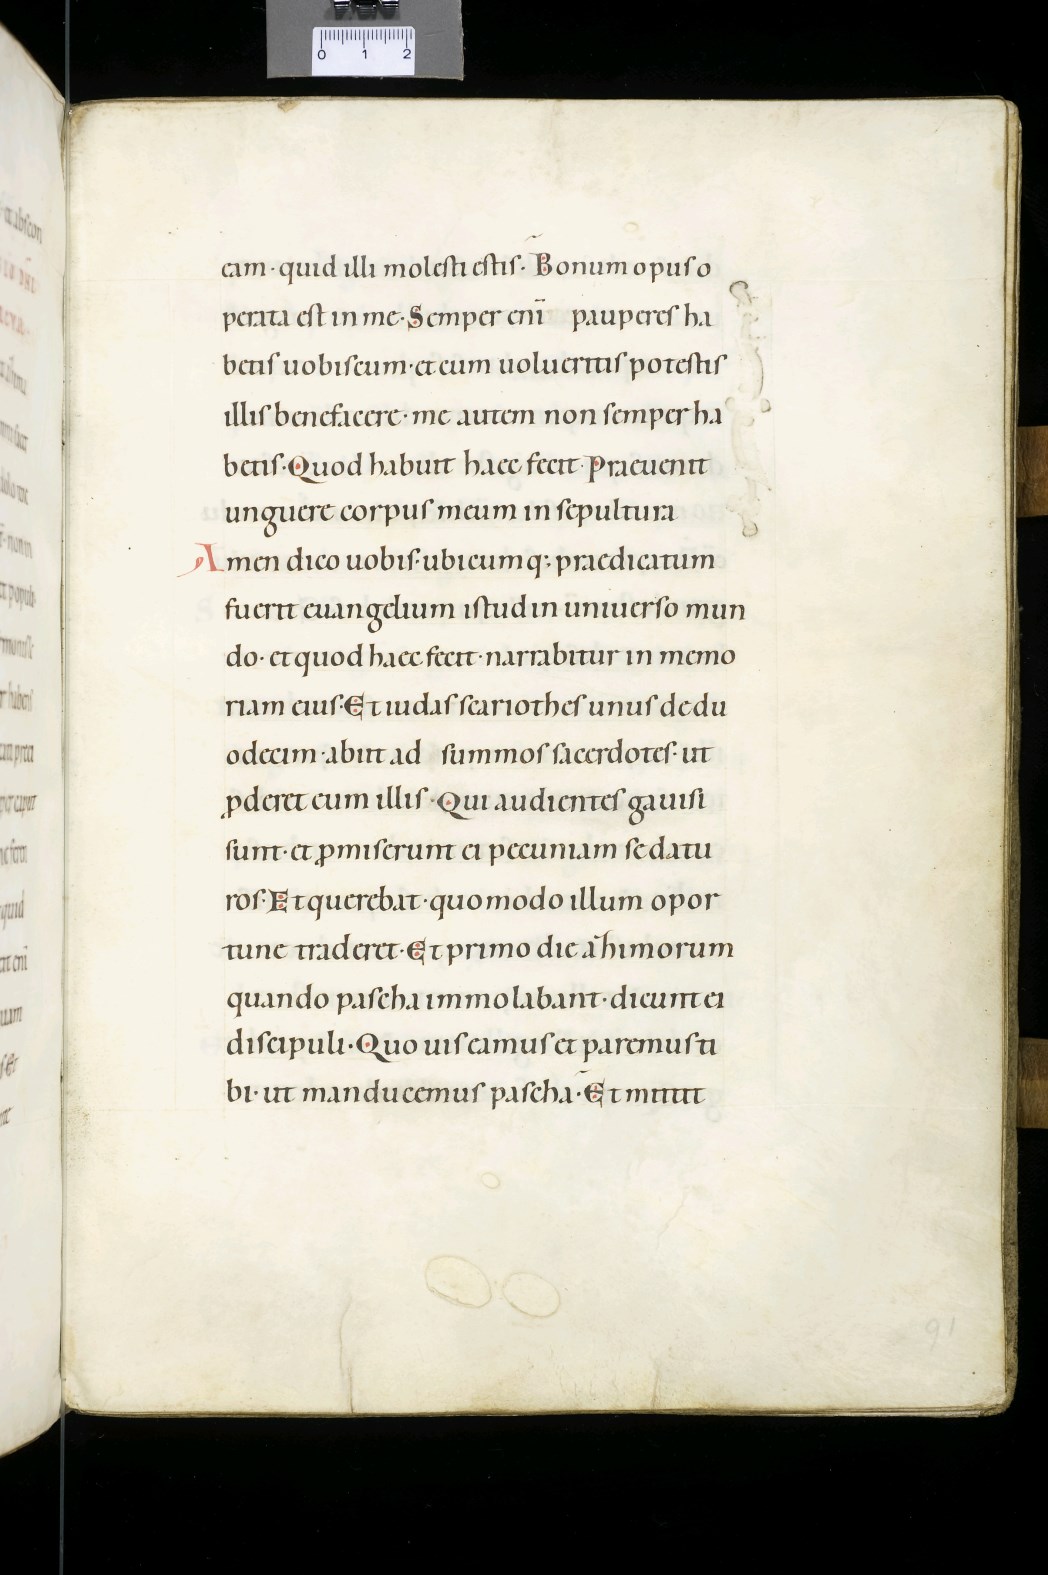 0 1 2
eam · quid illi molesti estis · Bonum opus o
perata est in me · Semper enī pauperes ha
betis uobiscum · et cum uolueritis potestis
illis benefacere · me autem non semper ha
betis · Quod habuit haec fecit · Praeuenit
unguere corpus meum in sepultura
Amen dico uobis · ubicumq; praedicatum
fuerit euangelium istud in uniuerso mun
do · et quod haec fecit · narrabitur in memo
riam eius · Et iudas scariothes unus de du
odecim · abiit ad summos sacerdotes · ut
ꝓderet eum illis · Qui audientes gauisi
sunt · et ꝓmiserunt ei pecuniam se datu
ros · Et querebat · quomodo illum opor
tune traderet · Et primo die azimorum
quando pascha immolabant · dicunt ei
discipuli · Quo uis eamus et paremus ti
bi · ut manducemus pascha · Et mittit
91